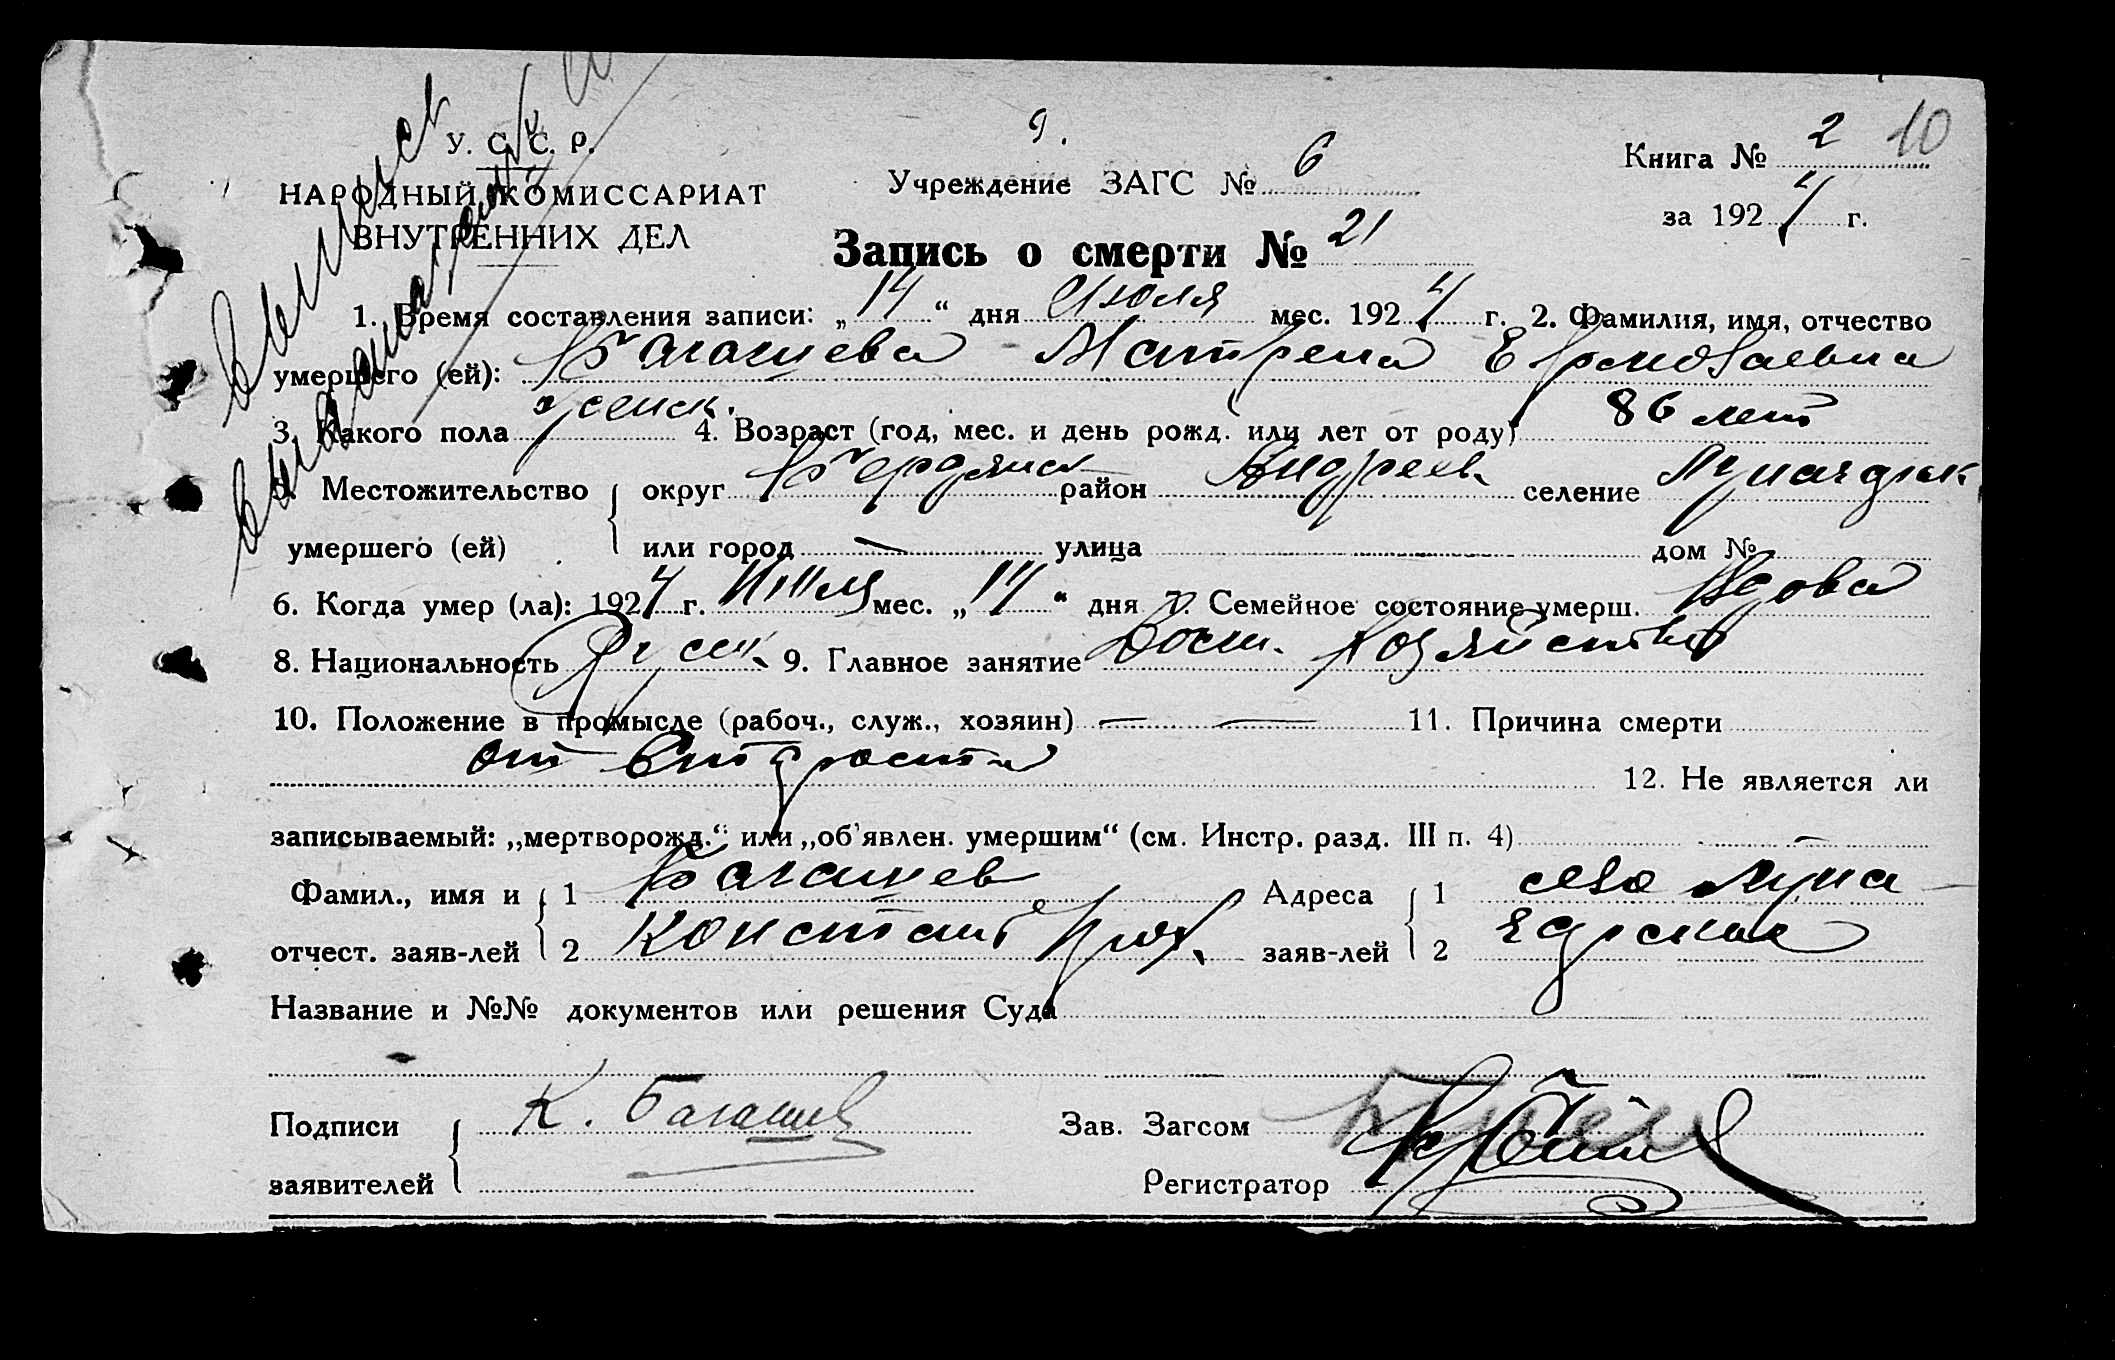 У. С. С. Р.
НАРОДНЫЙ КОМИССАРИАТ
ВНУТРЕННИХ ДЕЛ
Учреждение ЗАГС № 6
Запись о смерти № 21
Книга № 2 10
за 1924 г.
1. Время составления записи: „14“ дня Июля мес. 1924 г. 2. Фамилия, имя, отчество
умершего (ей): Багашева Матрена
3. Какого пола женск. 4. Возраст (год, мес. и день рожд. или лет от роду) 86 лет
5. Местожительство округ Бердянск район Андреев. селение
умершего (ей) или город — улица дом №
6. Когда умер (ла): 1924 г. Июля мес. „14“ дня 7. Семейное состояние умерш. Вдова
8. Национальность Русск. 9. Главное занятие Дом. Хозяйство
10. Положение в промысле (рабоч., служ., хозяин) — — 11. Причина смерти
от старости 12. Не является ли
записываемый: „мертворожд.“ или „об'явлен. умершим“ (см. Инстр. разд. III п. 4) —
Фамил., имя и 1 Багашев Адреса 1 село Луна-
отчест. заяв-лей 2 Констант Прох. заяв-лей 2
Название и №№ документов или решения Суда
Подписи К. Багашев Зав. Загсом
заявителей Регистратор